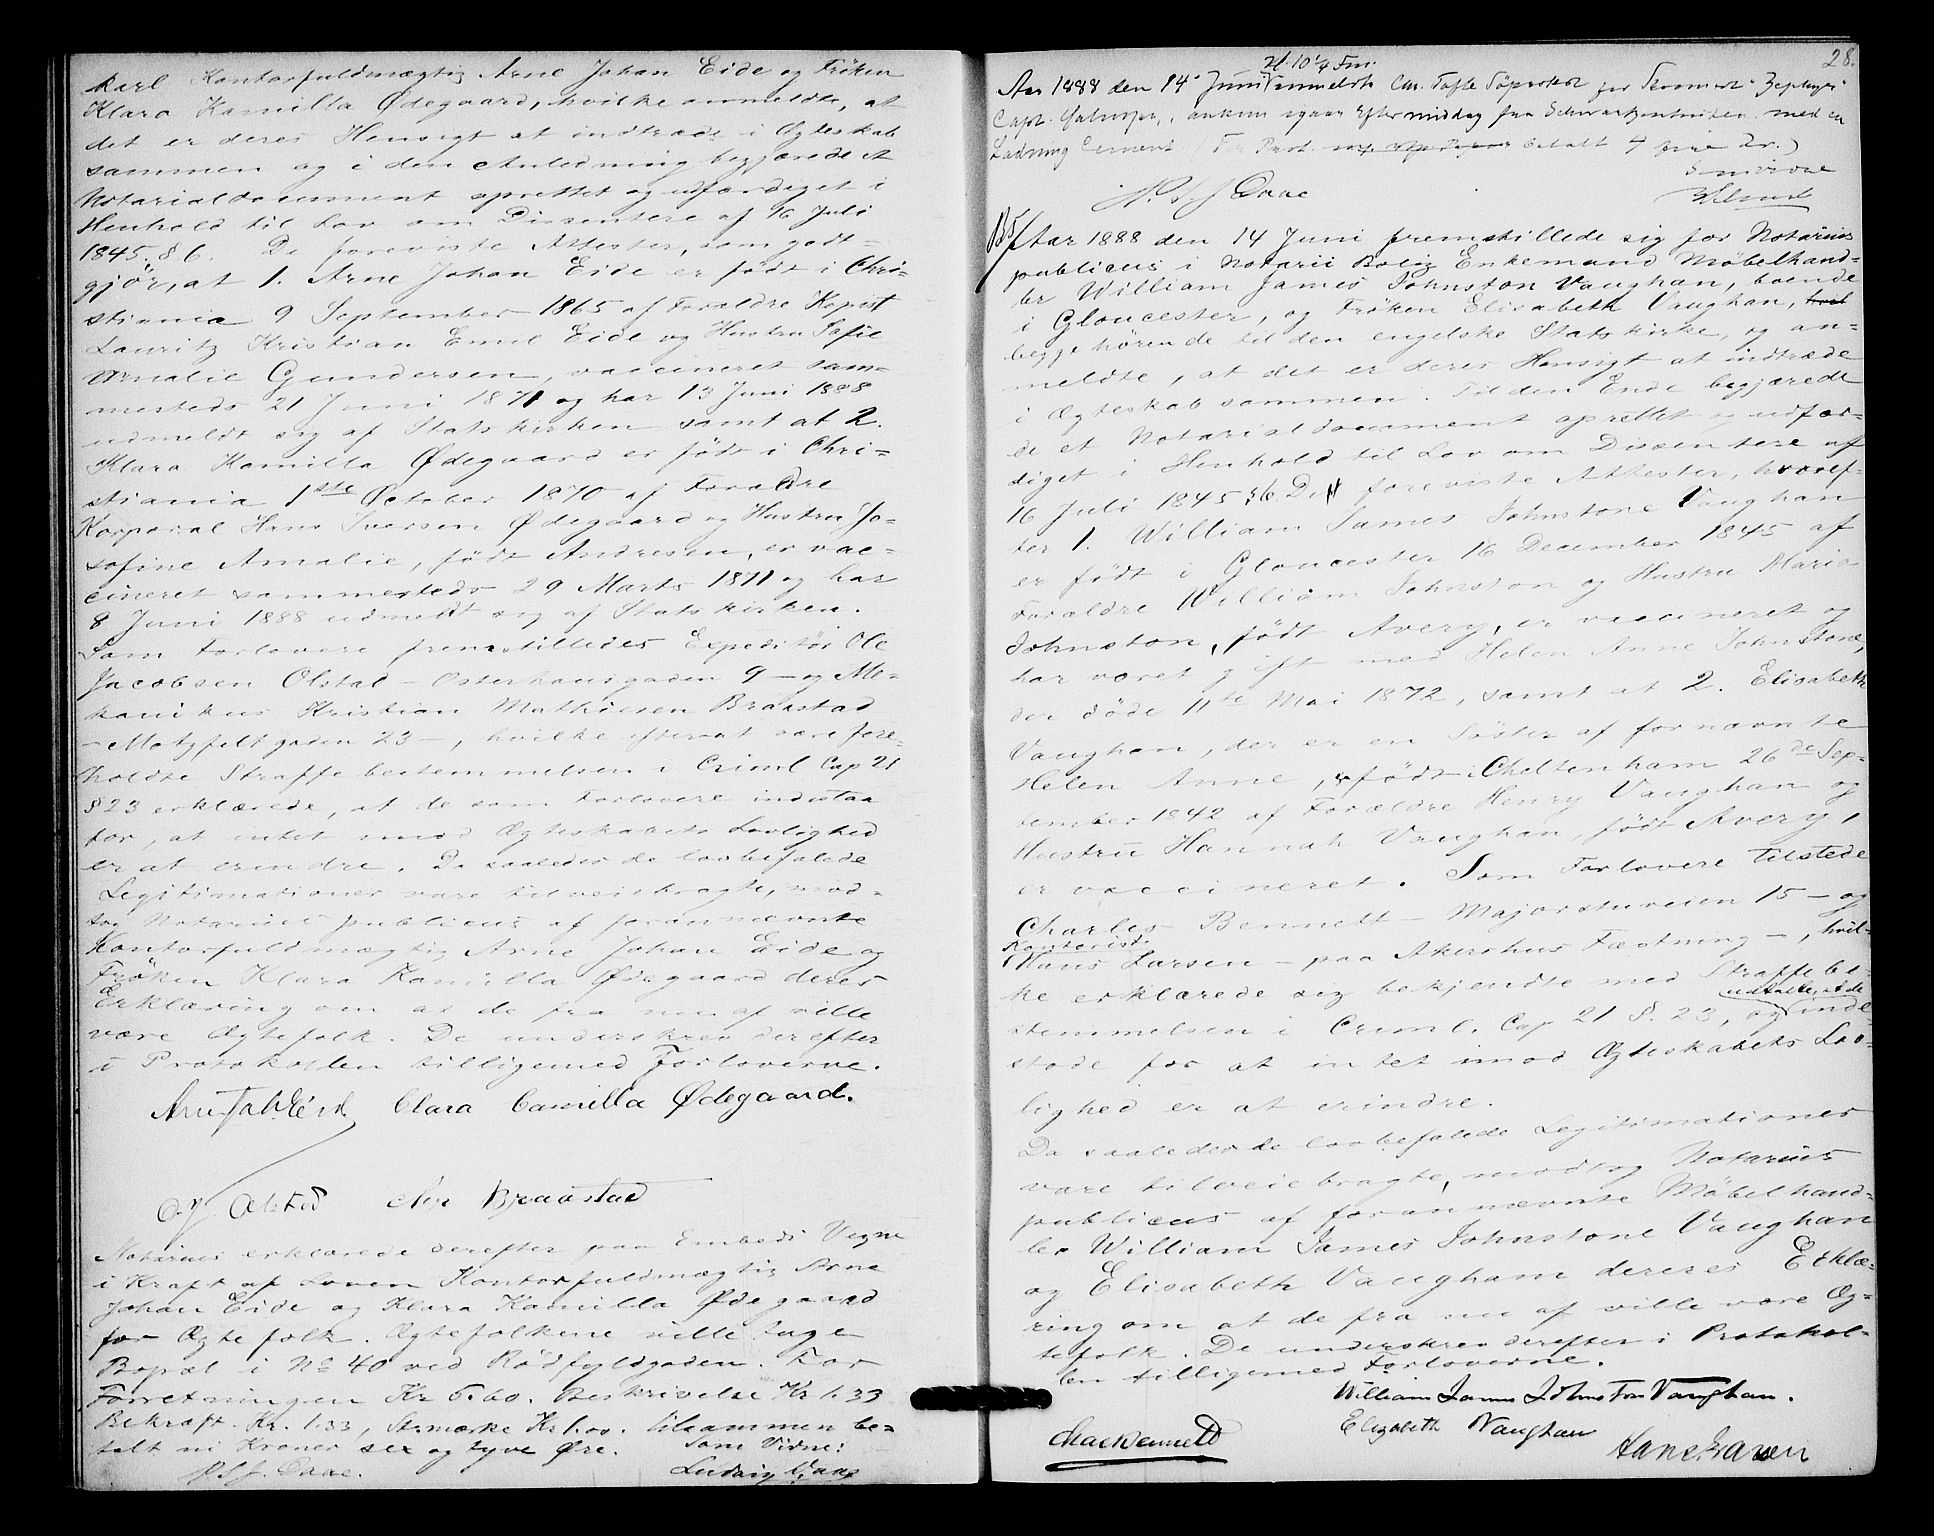 karl Kontorfuldmægtig Arne Johan Eide og Frøken
Klara Kamilla Ødegaard, hvilke anmeldte, at
det er deres Hensigt at indtræde i Ægteskab
sammen og i den Anledning begjærede et
Notarialdocument oprettet og udfærdiget i
Henhold til Lov om Dissentere af 16 Juli
1845. § 6. De foreviste Attester, som godt=
gjör, at 1. Arne Johan Eide er født i Chri=
stiania 9 September 1865 af Forældre Kopist
Lauritz Kristian Emil Eide og Hustru Sofie
Amalie Gundersen, vaccineret sam=
mesteds 21 Juni 1871 og har 13 Juni 1888
udmeldt sig af Statskirken samt at 2.
Klara Kamilla Ødegaard er født i Chri=
stiania 1ste October 1870 af Forældre
Korporal Hans Iversen Ødegaard og Hustru Jo=
sofine Amalie, født Andresen, er vac=
cineret sammesteds 29 Marts 1871 og har
8 Juni 1888 udmeldt sig af Statskirken.
Som Forlovere fremstilledes Expeditör Ole
Jacobsen Olstad - Osterhausgaden 9 - og Me=
kanikus Kristian Mathiesen Braastad
- Motzfeltgaden 23 -, hvilke efterat være fore=
holdte Straffebestemmelsen i Criml. Cap 21
§ 23 erklærede, at de som Forlovere indestaa
for, at intet imod Ægteskabets Lovlighed
er at erindre. Da saaledes de lovbefalede
Legitimationer vare tilveiebragte, mod=
tog Notarius publicus af forannævnte
Kontorfuldmægtig Arne Johan Eide og
Frøken Klara Kamilla Ødegaard deres
Erklæring om at de fra nu af ville
være Ægtefolk. De underskrev derefter
i Protokollen tilligemed Forloverne.
Arne Joh Eide Clara Camilla Ødegaard.
O. J. Olstad Braastad
Notarius erklærede derefter paa Embeds Vegne
i Kraft af Loven Kontorfuldmægtig Arne
Johan Eide og Klara Kamilla Ødegaard
for Ægtefolk. Ægtefolkene ville tage
Bopæl i No 40 ved Rödfyldgaden. For
Forretningen Kr 5.60. Beskrivelse Kr 1.33
Bekræft. Kr. 1.33, Stmærke Kr 1.00. tilsammen be=
talt ni Kroner sex og tyve Øre. Som Vidne:
Daae. Ludvig
28.
Kl. 10 1/4 Fm.
Aar 1888 den 14 Juni anmeldte Chr. Tofte Söprotest for "Zephyr"
Capt. ankom igaar Eftermiddag fra med en
Ladning Cement. betalt 4 fire Kr.)
Daae
Aar 1888 den 14 Juni fremstillede sig for Notarius
publicus i Notarii Bolig Enkemand Möbelhand=
ler William James Johnston Vaughan, boende
i Gloucester, og Frøken Elisabeth Vaughan,
begge hörende til den engelske Statskirke, og an=
meldte, at det er deres Hensigt at indtræde
i Ægteskab sammen. Til den Ende begjærede
de et Notarialdocument oprettet og udfær=
diget i Henhold til Lov om Dissentere af
16 Juli 1845 § 6. De foreviste Attester, hvoref=
ter 1. William James Johnstone Vaughan
er født i Gloucester 16 December 1845 af
Forældre William Johnston og Hustru Maria
Johnston, født Avery, er vaccineret og
har været gift med Helen Anne Johnstone,
der døde 11te Mai 1872, samt at 2. Elisabeth
Vaughan, der er en Søster af fornævnte
Helen Anne, er født i Cheltenham 26de Sep=
tember 1842 af Forældre Henry Vaughan og
Hustru Hannah Vaughan, født Avery,
er vaccineret. Som Forlovere tilstede
Charles Bennett - Majorstuveien 15 - og
Kontorist
Hans Larsen - paa Akershus Fæstning -, hvil=
ke erklærede sig bekjendte med Straffebe=
udtalte, at de
stemmelsen i Criml. Cap 21 § 23, og inde=
stode for at intet imod Ægteskabets Lov=
lighed er at erindre.
Da saaledes de lovbefalede Legitimationer
vare tilveiebragte, modtog Notarius
publicus af forannævnte Möbelhand=
ler William James Johnstone Vaughan
og Elisabeth Vaugham deres Erklæ=
ring om at de fra nu af ville være Æg=
tefolk. De underskrev derefter i Protokol=
len tilligemed Forloverne.
William James Johnston Vaughan.
Elizabeth Vaughan
Chas Bennett Hans Larsen